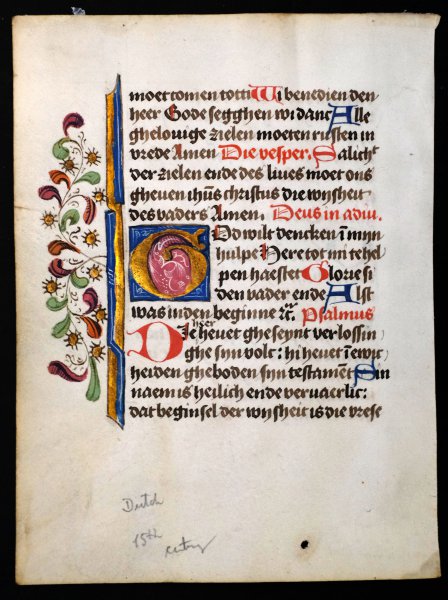 moet comen tot ti Wi benedien den
heer Gode segghen wi danc Alle
ghelovige zielen moeten rusten in
vrede Amen Die vesper. Salicht
der zielen ende des lives moet ons
gheven ihũs christus die wijsheit
des vaders Amen. Deus in adiu.
God wilt dencken ī mijn
hulpe Here tot mi te hel
pen haestet Glorie si
den vader ende Alst
was inden beginne ⁊c̄. Psalmus
Die heͬr hevet gheseynt verlossin
ghe sijn volc: hi hevet ī ewic
heiden gheboden sijn testamēt Sin
naem is heilich ende vervaerlic:
dat beghinsel der wijsheit is die vrese
Dutch
15th
century